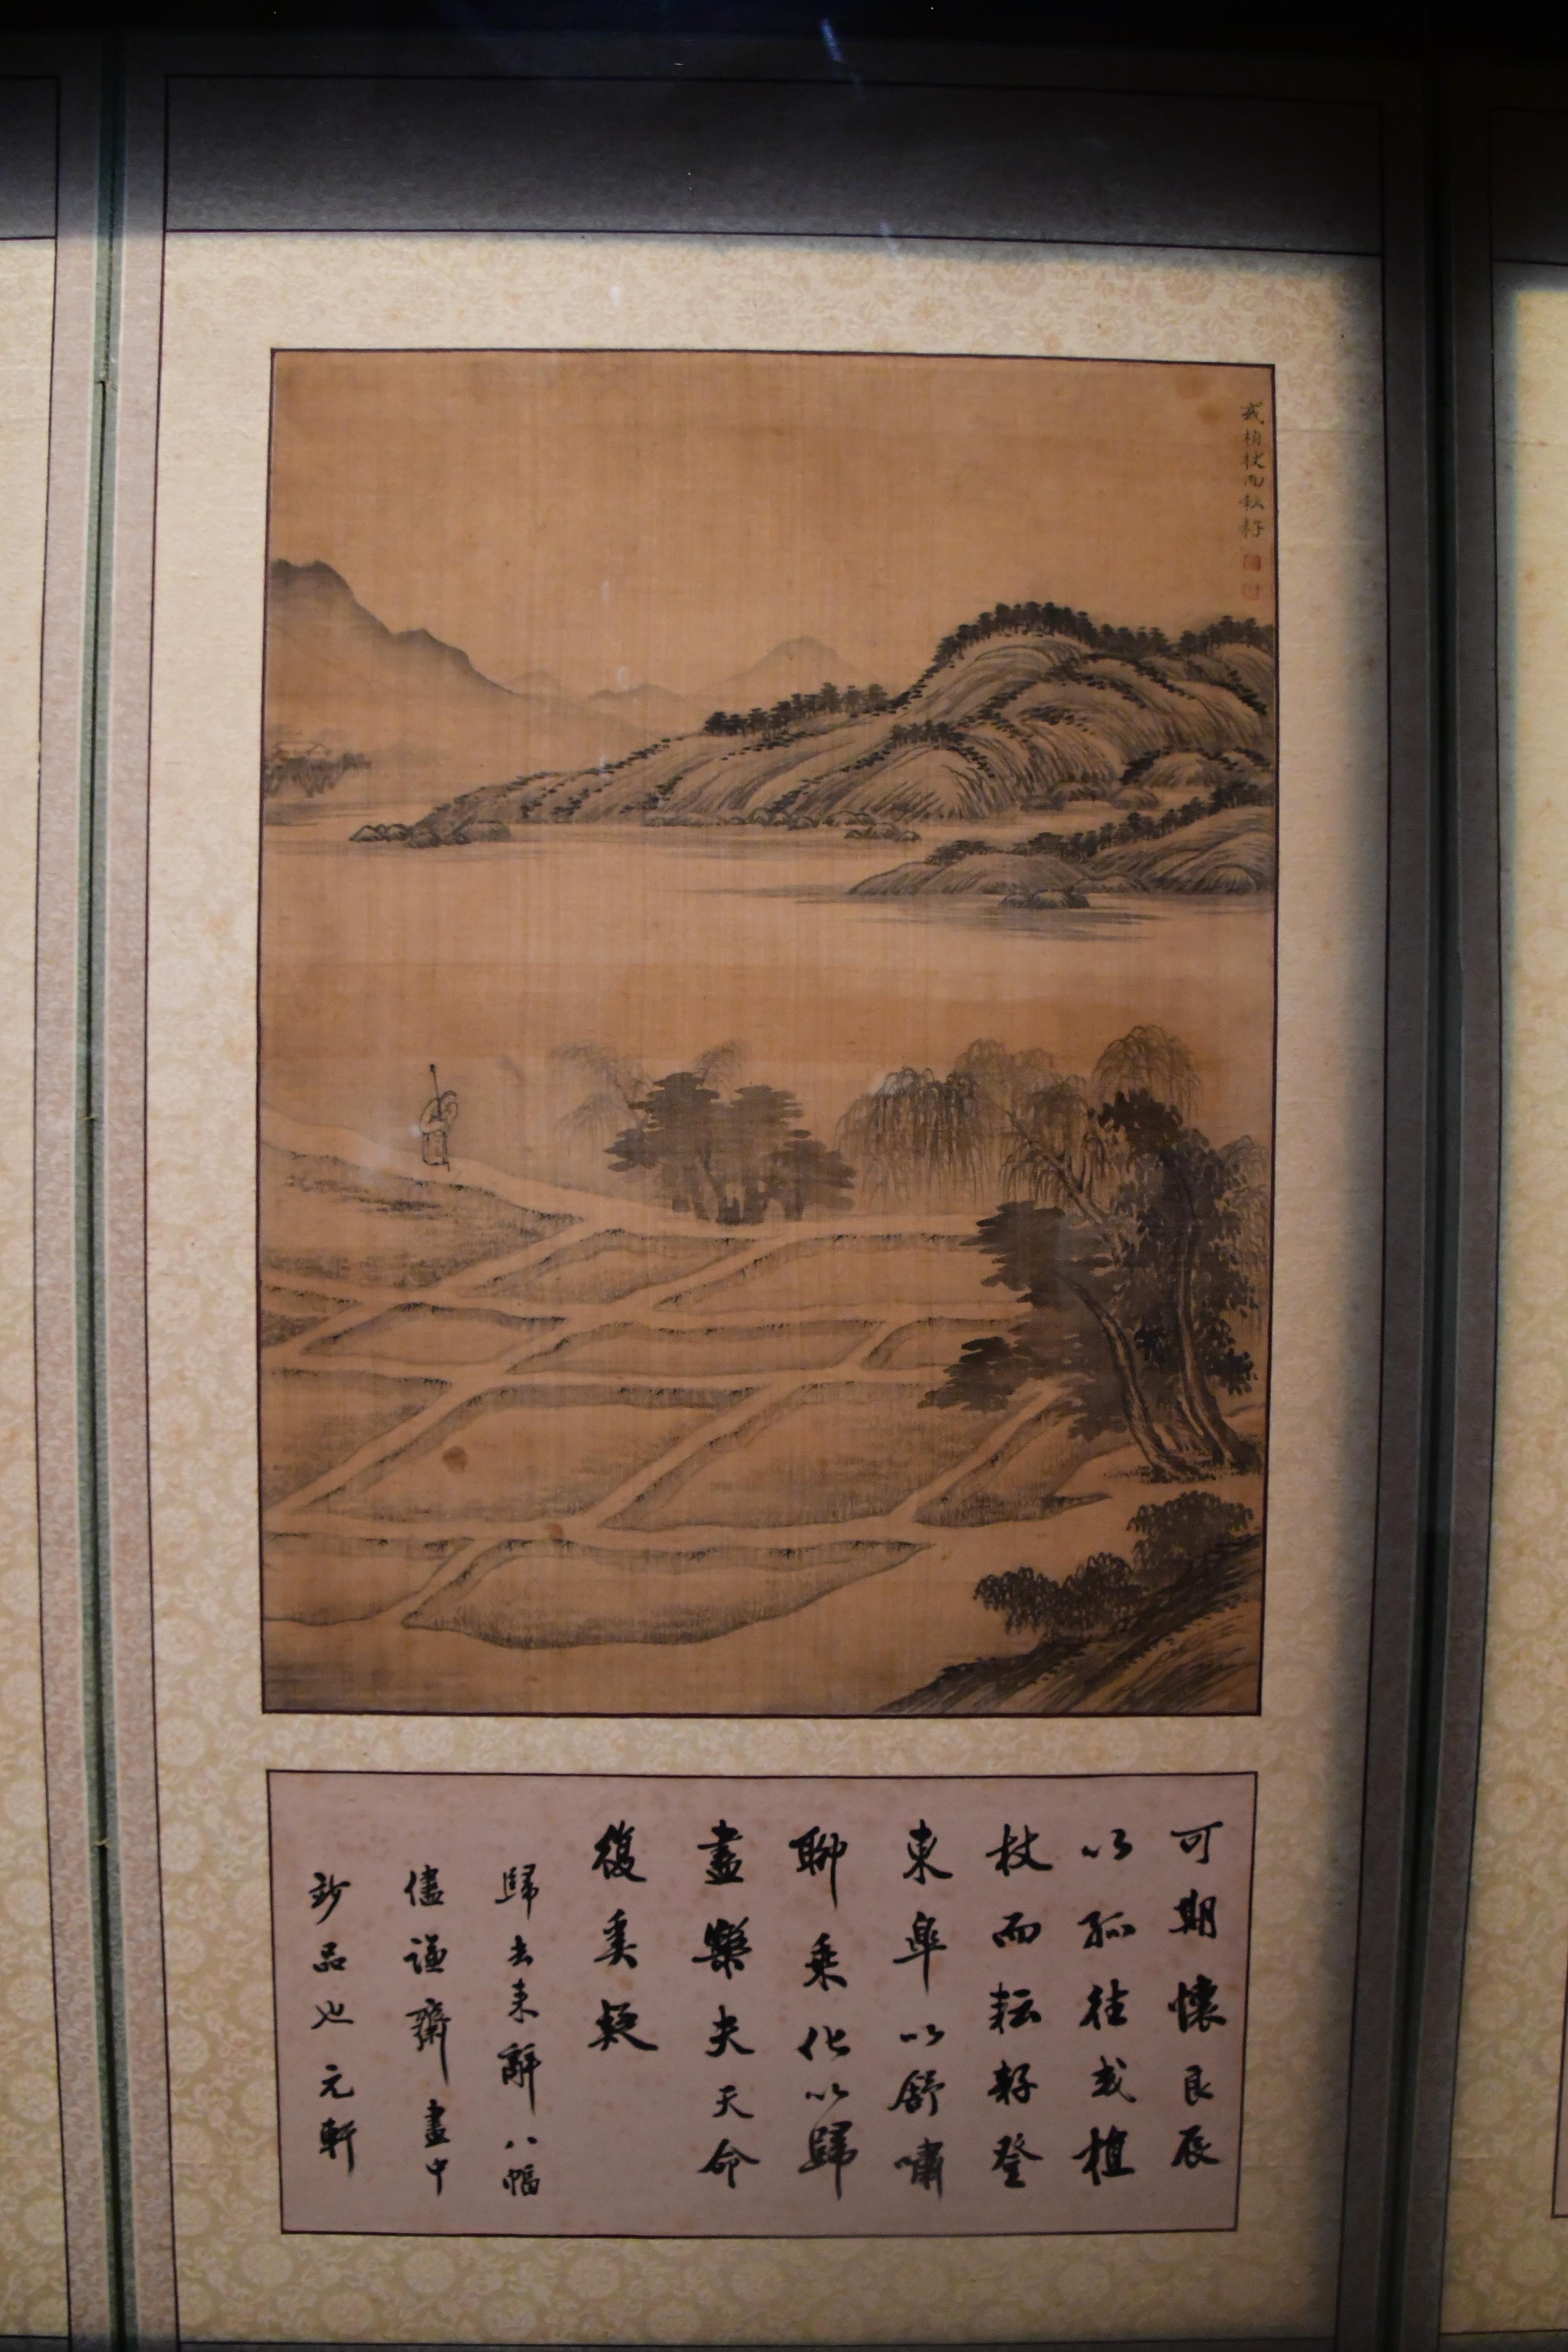 或植杖而耘耔
可期懷良辰
以孤往或植
杖而耘耔登
東皐以舒嘯
聊乘化以歸
盡樂夫天命
復奚疑
歸去來辭八幅
儘謙齋畫中
玅品也元軒